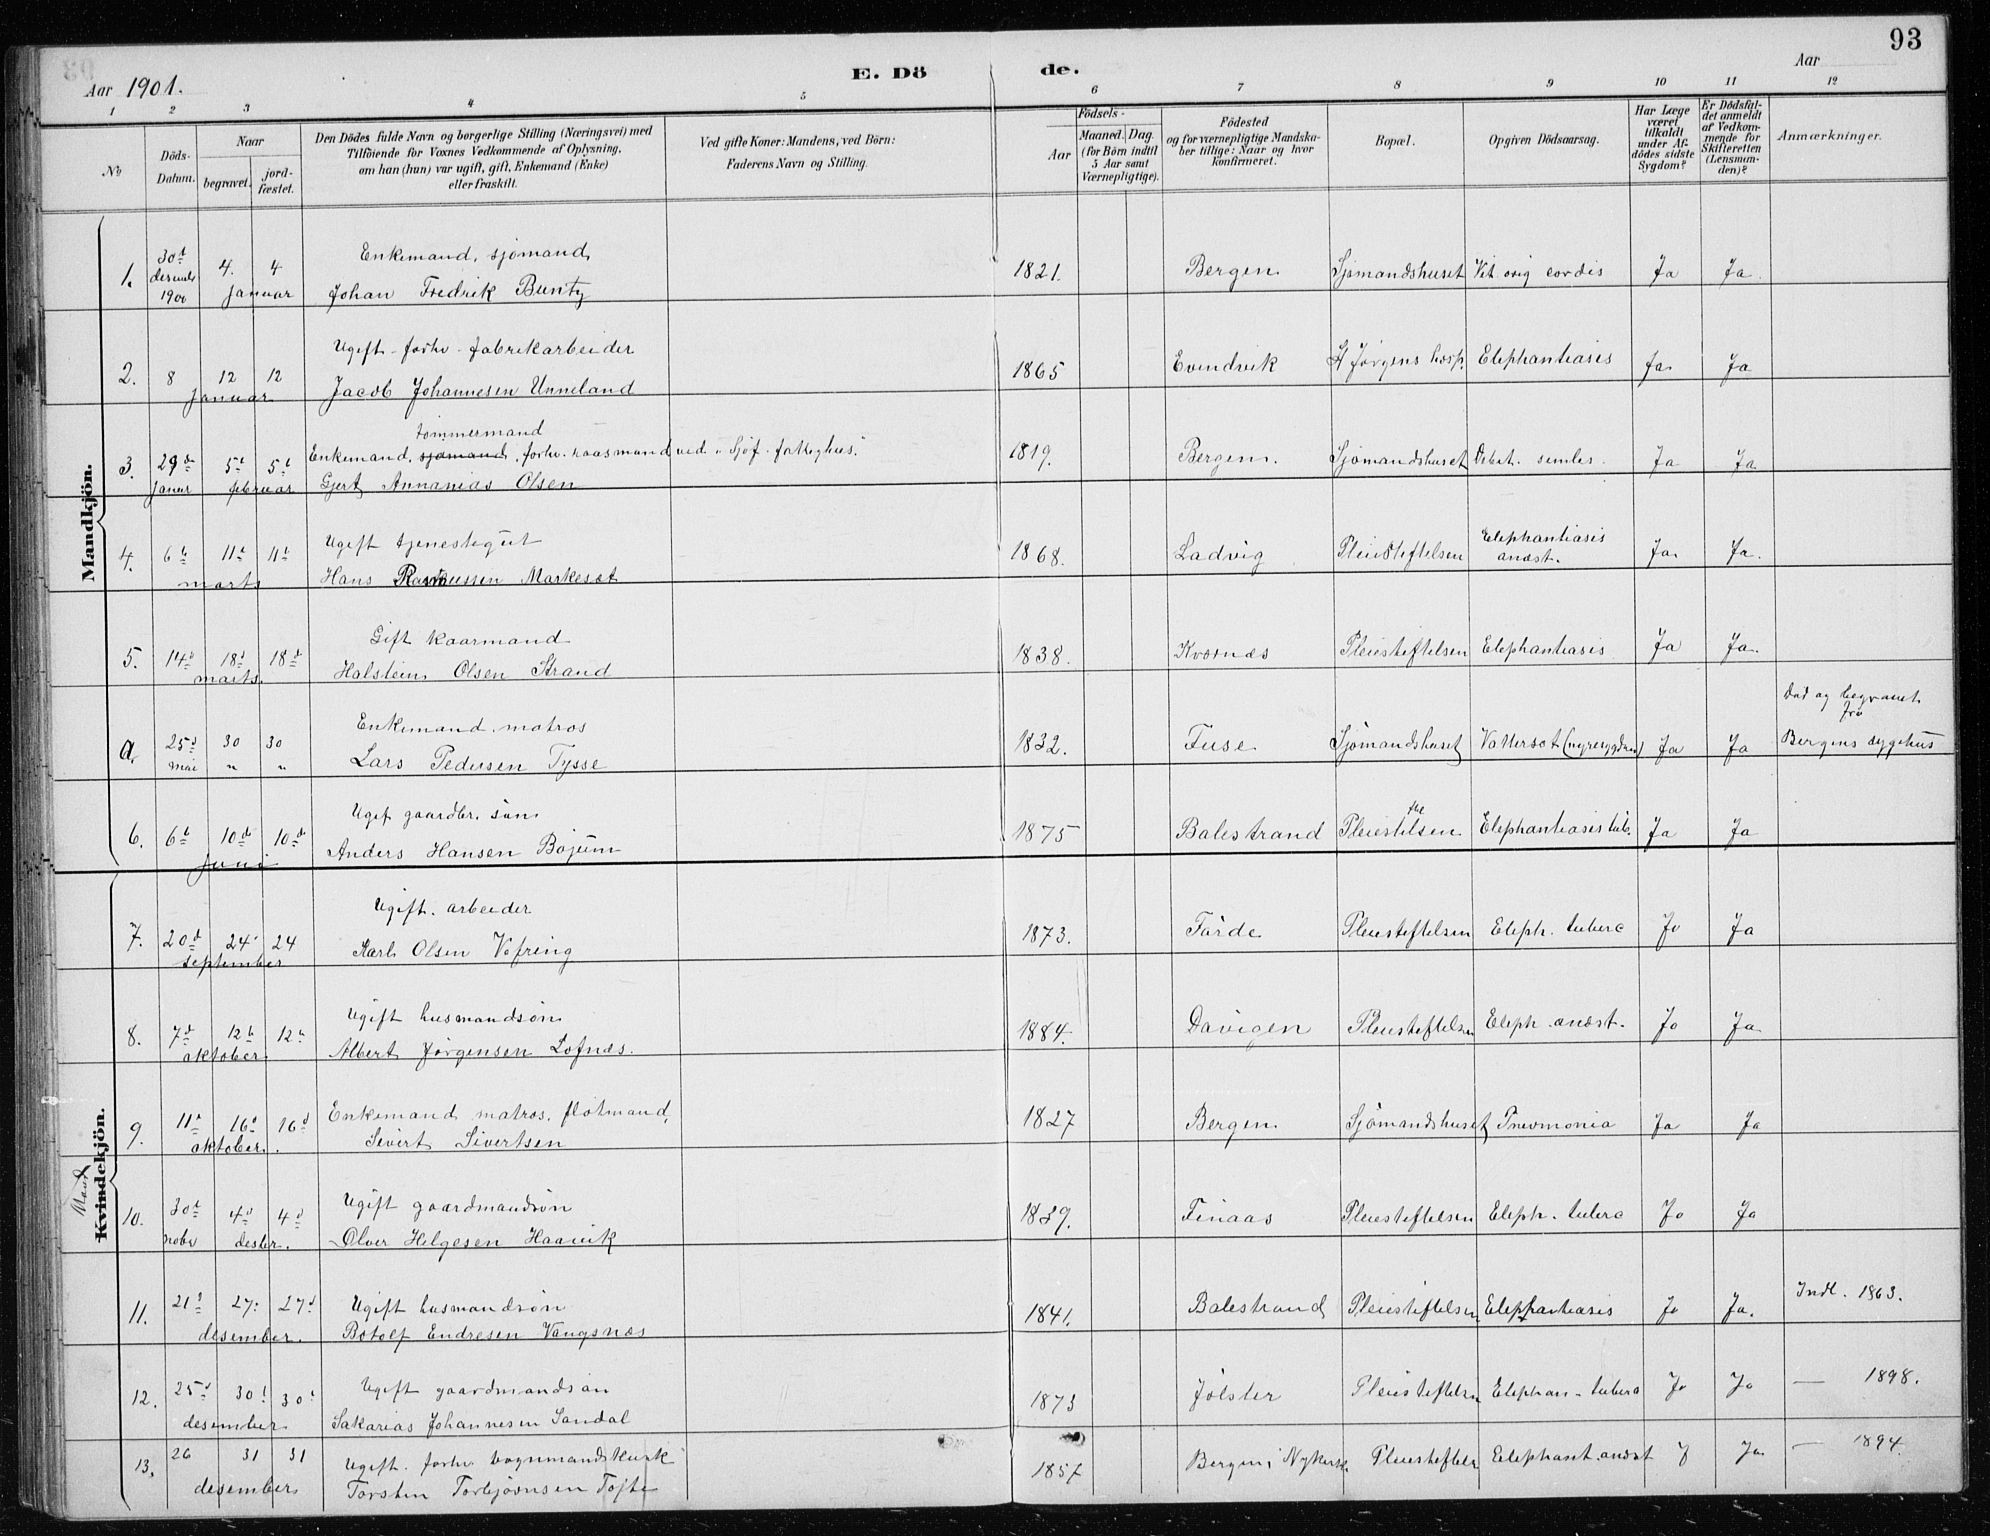 93
Aar 1901.
E. Dö de.
Aar
1 2 3 4 5 6 7 8 9 10 11 12
No
Döds-Datum.
Naar begravet. jordfæstet.
Den Dödes fulde Navn og borgerlige Stilling (Næringsvei) med
Tilföiende for Voxnes Vedkommende af Oplysning,
om han (hun) var ugift, gift, Enkemand (Enke)
eller fraskilt.
Ved gifte Koner: Mandens, ved Börn:
Faderens Navn og Stilling.
Födsels-
Aar
Maaned. Dag.
(for Börn indtil
5 Aar samt
Værnepligtige).
Födested
og for værnepligtige Mandskaber tillige: Naar og hvor
konfirmeret.
Bopæl.
Opgiven Dödsaarsag.
Har Læge
været
tilkaldt
under Afdödes sidste
Sygdom?
Er Dödsfaldet anmeldt
af Vedkommende for
Skifteretten
(Lensmanden)?
Anmærkninger.
Mandkjön.
1. 30d desembr 1900 4. 4 januar Enkemand, sjømand
Johan Fredrik Buntz 1821. Bergen Sjømandshuset Vit. orig cordis Ja Ja.
2. 8 12 12 januar Ugift - forhv - fabrikarbeider
Jacob Johannesen Unneland 1865 Evindvik St Jørgens hosp. Elephantiasis Ja Ja
tømmermand
3. 29de januar 5t 5t februar Enkemand, sjømand, forhv. raasmand ved "Sjøf. fattighus."
Gjert Annanias Olsen 1819. Bergen. Sjømandshuset Debet. seniles. Ja Ja
4. 6t 11t 11t marts Ugift tjenestegut
Hans Rasmussen Markeset 1868. Ladvig Pleiestiftelsen Elephantiasis
anæst. Ja Ja.
5. 14d 18d 18d marts. Gift kaarmand
Halstein Olsen Strand 1838. Kvernæs Pleiestiftelsen Elephantiasis Ja Ja.
a. 25d mai 30 " 30 " Enkemand. matros
Lars Pedersen Tysse 1832. Fuse Sjømandshuset Vattersot (nyresygdom) Ja Ja død og begravet
fra
Bergens sygehus
6. 6t 10de 10de juni Ugift gaardbr. søn
Anders Hansen Bøjum 1875 Balestrand Pleiestiftelsen Elephantiasis tub. Ja Ja
Mand Kvindekjön.
7. 20d 24 24 september Ugift. arbeider
Karl Olsen Vefring 1873. Førde Pleiestiftelsen Eleph. tubera Ja Ja
8. 7d 12t 12t oktober Ugift husmandsøn
Albert Jørgensen Lofnæs. 1884. Davigen Pleiestiftelsen Eleph. anæst. Ja Ja
9. 11t 16d 16d oktober. Enkemand matros. flotmand,
Sivert Sivertsen 1827 Bergen Sjømandshuset Pnevmonia Ja Ja
10. 30t nobr 4d 4d desbr. Ugift gaardmandsøn
Olver Helgesen Haavik 1839. Finaas Pleiestiftelsen Eleph. tubera Ja Ja
11. 21d 27. 27d desember. Ugift husmandsøn
Botolf Endresen Vangsnæs 1841. Balestrand Pleiestiftelsen Elephantiasis Ja Ja. Indl. 1863.
12. 25d 30t 30t desember Ugift gaardmandsøn
Sakarias Johannesen Sandal 1873 Jølster Pleiestiftelsn Elephan - tubera Ja Ja — 1898.
13. 26 31 31 desember Ugift. forhv vognmandskusk
Torsten Torbjørnsen Tofte 1857 Bergen i Nykirk. Pleiestiftels Elephant. anæst J Ja — 1894.